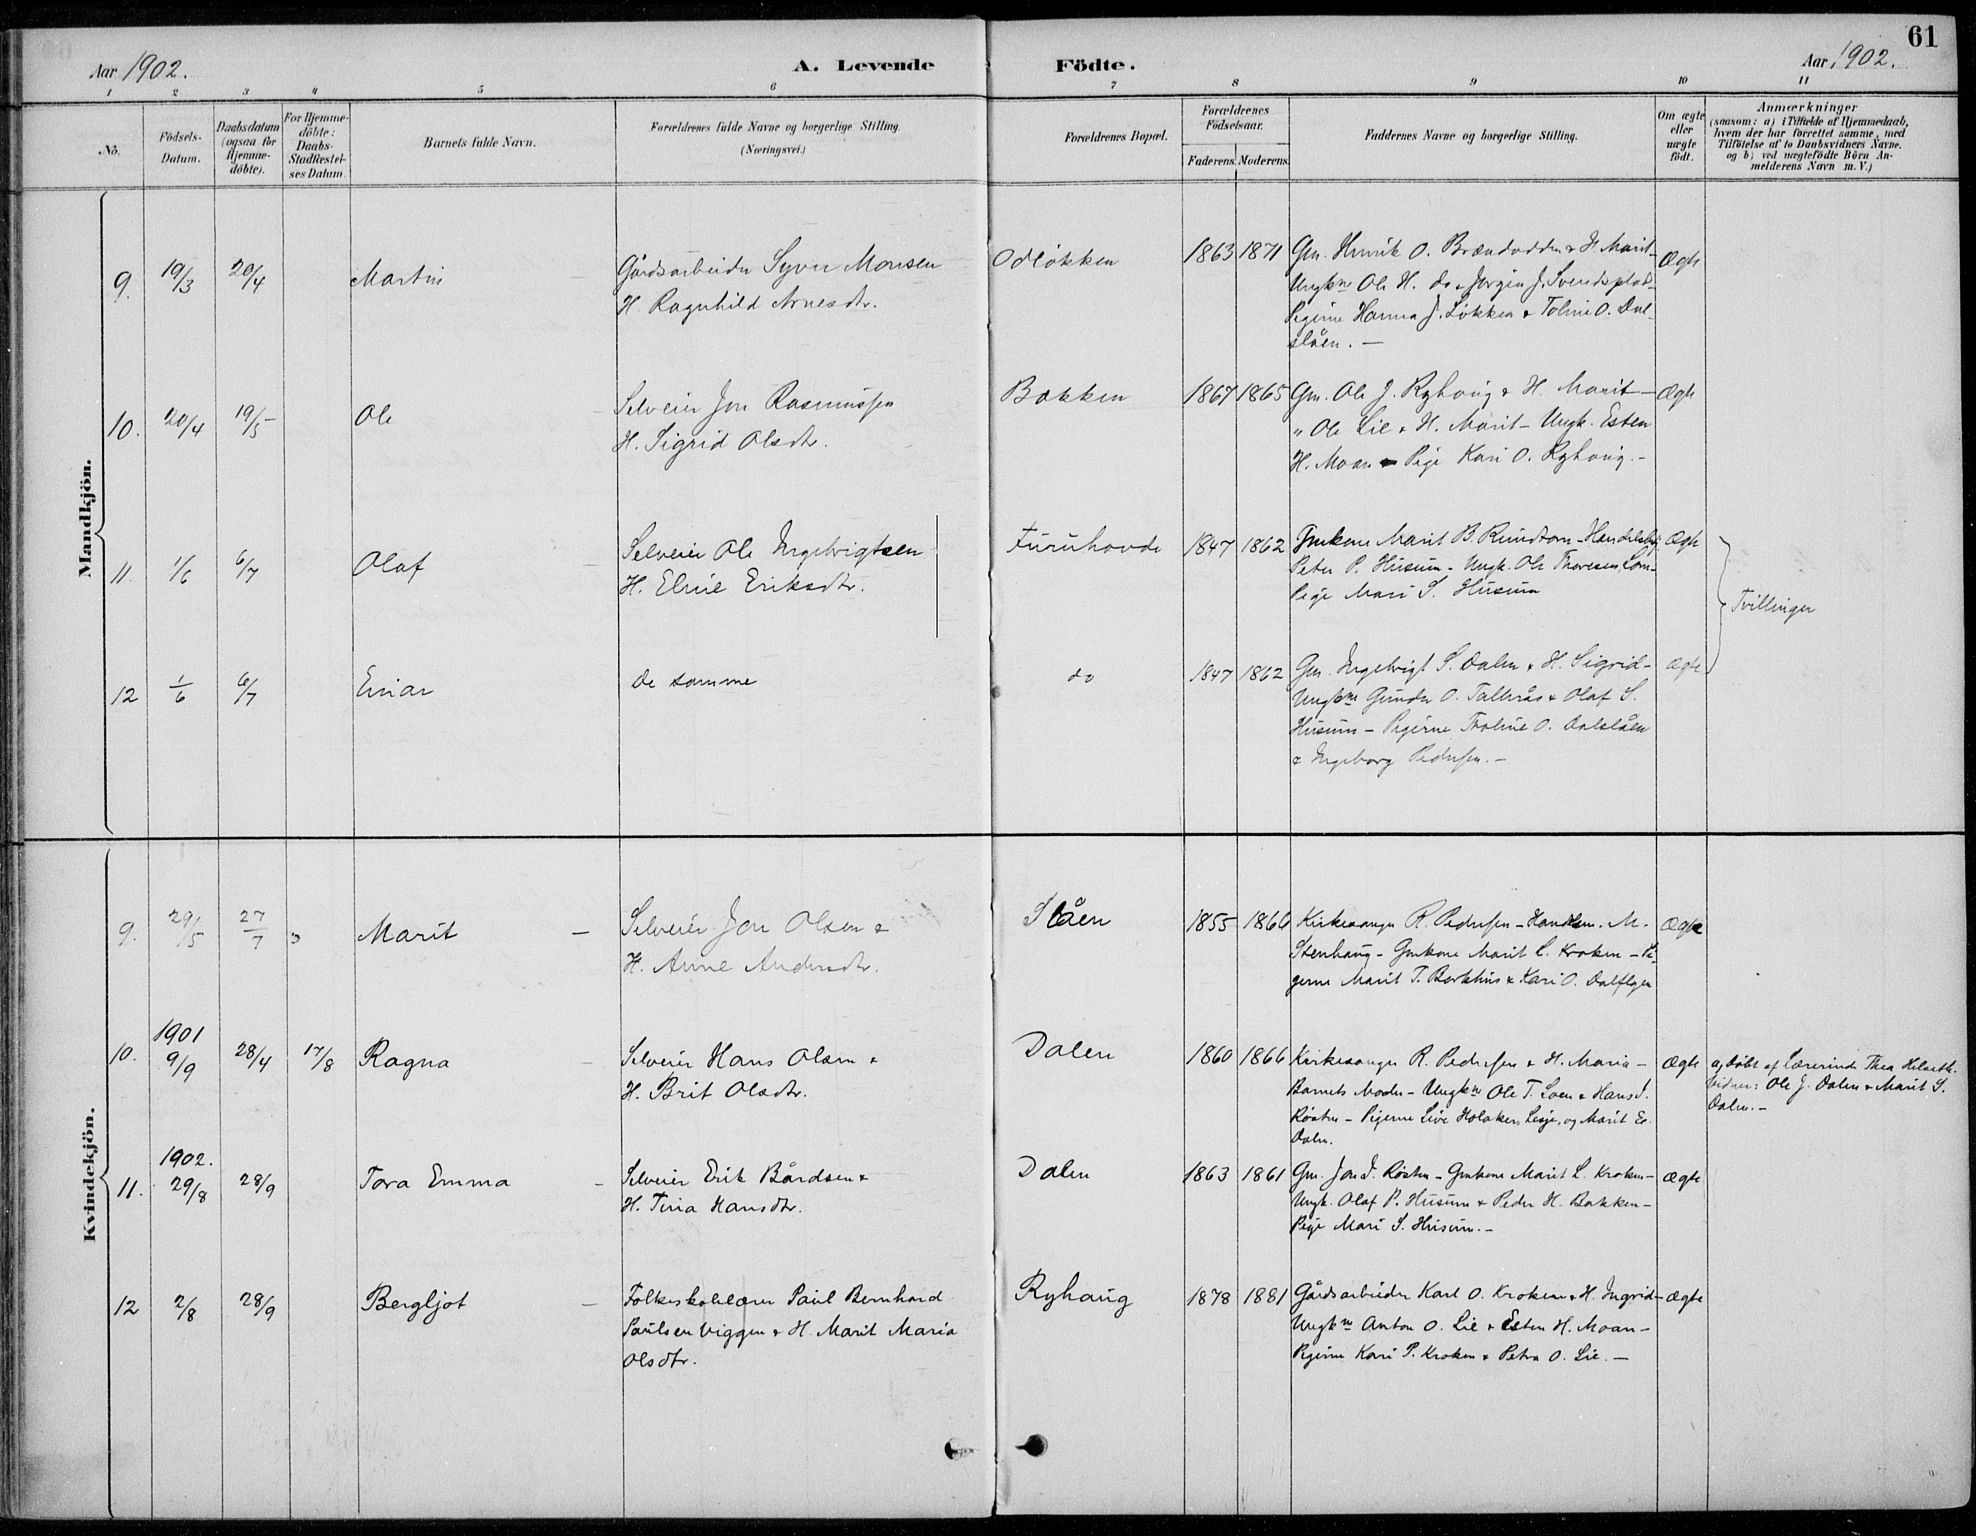 61
Aar 1902.
A. Levende Födte.
Aar 1902.
1 2 3 4 5 6 7 8 9 10 11
No.
Födsels-Datum.
Daabsdatum (ogsaa for Hjemme-döbte).
For Hjemme-döbte: Daabs-Stadfæstel-ses Datum.
Barnets fulde Navn.
Forældrenes fulde Navne og borgerlige Stilling.
(Næringsvei.)
Forældrenes Bopæl.
Forældrenes Födselsaar.
Faderens. Moderens.
Faddernes Navne og borgerlige Stilling.
Om ægte eller uægte födt.
Anmærkninger
(saasom: a) i Tilfælde af Hjemmedaab,
hvem der har forrettet samme, med
Tilföielse af to Daabsvidners Navne.
og b) ved uægtefödte Börn An-
melderens Navn m.V.)
Mandkjön.
9. 19/3 20/4 Martin
Gårdsarbeider Syver Monsen
H. Ragnhild Arnesdtr.
Odløkken 1863 1871
Gm. Henrik O. Brændvodden & H. Marit-
Ungkne Ole H. do & Jørgen J. Svendsplad-
Pigerne Hanna J. Løkken & Toline O. Dal-
slåen. —
Ægte
10. 20/4 19/5 Ole
Selveier Jon Rasmussen
H. Sigrid Olsdtr.
Bakken 1867 1865
Gm. Ole J. Ryhaug & H. Marit —
" Ole Lie & H. Marit - Ungk. Esten
H. Moan - Pige Kari O. Ryhaug. -
Ægte
11. 1/6 6/7 Olaf
Selveier Ole Ingebrigtsen
H. Eline Eriksdtr.
Furuhovde 1847 1862
Gmkone Marit B. Rundtom - Handelsbg.
Peter P. Husum - Ungk. Ole Thoresen, Lom-
Pige Mari S. Husum
Ægte
Tvillinger
12 1/6 6/7 Einar
De samme
do 1847 1862
Gm. Ingebrigt S. Dalen & H. Sigrid -
Ungkne Gunder O. Tallerås & Olaf S.
Husum - Pigerne Tholine O. Dalslåen
& Ingeborg Pedersen. -
Ægte
Kvindekjön.
9. 29/5 27/7 Marit
Selveier Jon Olsen &
H. Anne Andersdtr.
Slåen 1855 1866
Kirkesanger R. Pedersen - Handelsm. M.
Stenhaug - Gmkone Marit L. Kroken - Pi-
gerne Marit T. Barkhus & Kari O.
Ægte
10. 1901 9/9 28/4 17/8 Ragna
Selveier Hans Olsen &
H. Brit Olsdtr.
Dalen 1860 1866
Kirkesanger R. Pedersen & H. Maria -
Barnets Moder - Ungkne Ole T. Loen & Hans J.
Røsten - Pigerne Live Holaker, Lesje, og Marit E.
Dalen.
Ægte
a) Døbt af Lærerinde Thea Helseth.
Vidner: Ole J. Dalen & Marit S.
Dalen. -
11. 1902. 29/8 28/9 Tora Emma
Selveier Erik Bårdsen &
H. Tina Hansdtr.
Dalen 1863 1861
Gm. Jon J. Røsten - Gmkone Marit L. Kroken -
Ungk. Olaf P. Husum & Peder H. Bakken -
Pige Mari S. Husum. -
Ægte
12 2/8 28/9 Bergljot
Folkeskolelærer Paul Bernhard
Paulsen Viggen & H. Marit Maria
Olsdtr.
Ryhaug 1878 1881
Gårdsarbeider Karl O. Kroken & H. Ingrid -
Ungkne Anton O. Lie & Esten H. Moan -
Pigerne Kari P. Kroken & Petra O. Lie. —
Ægte